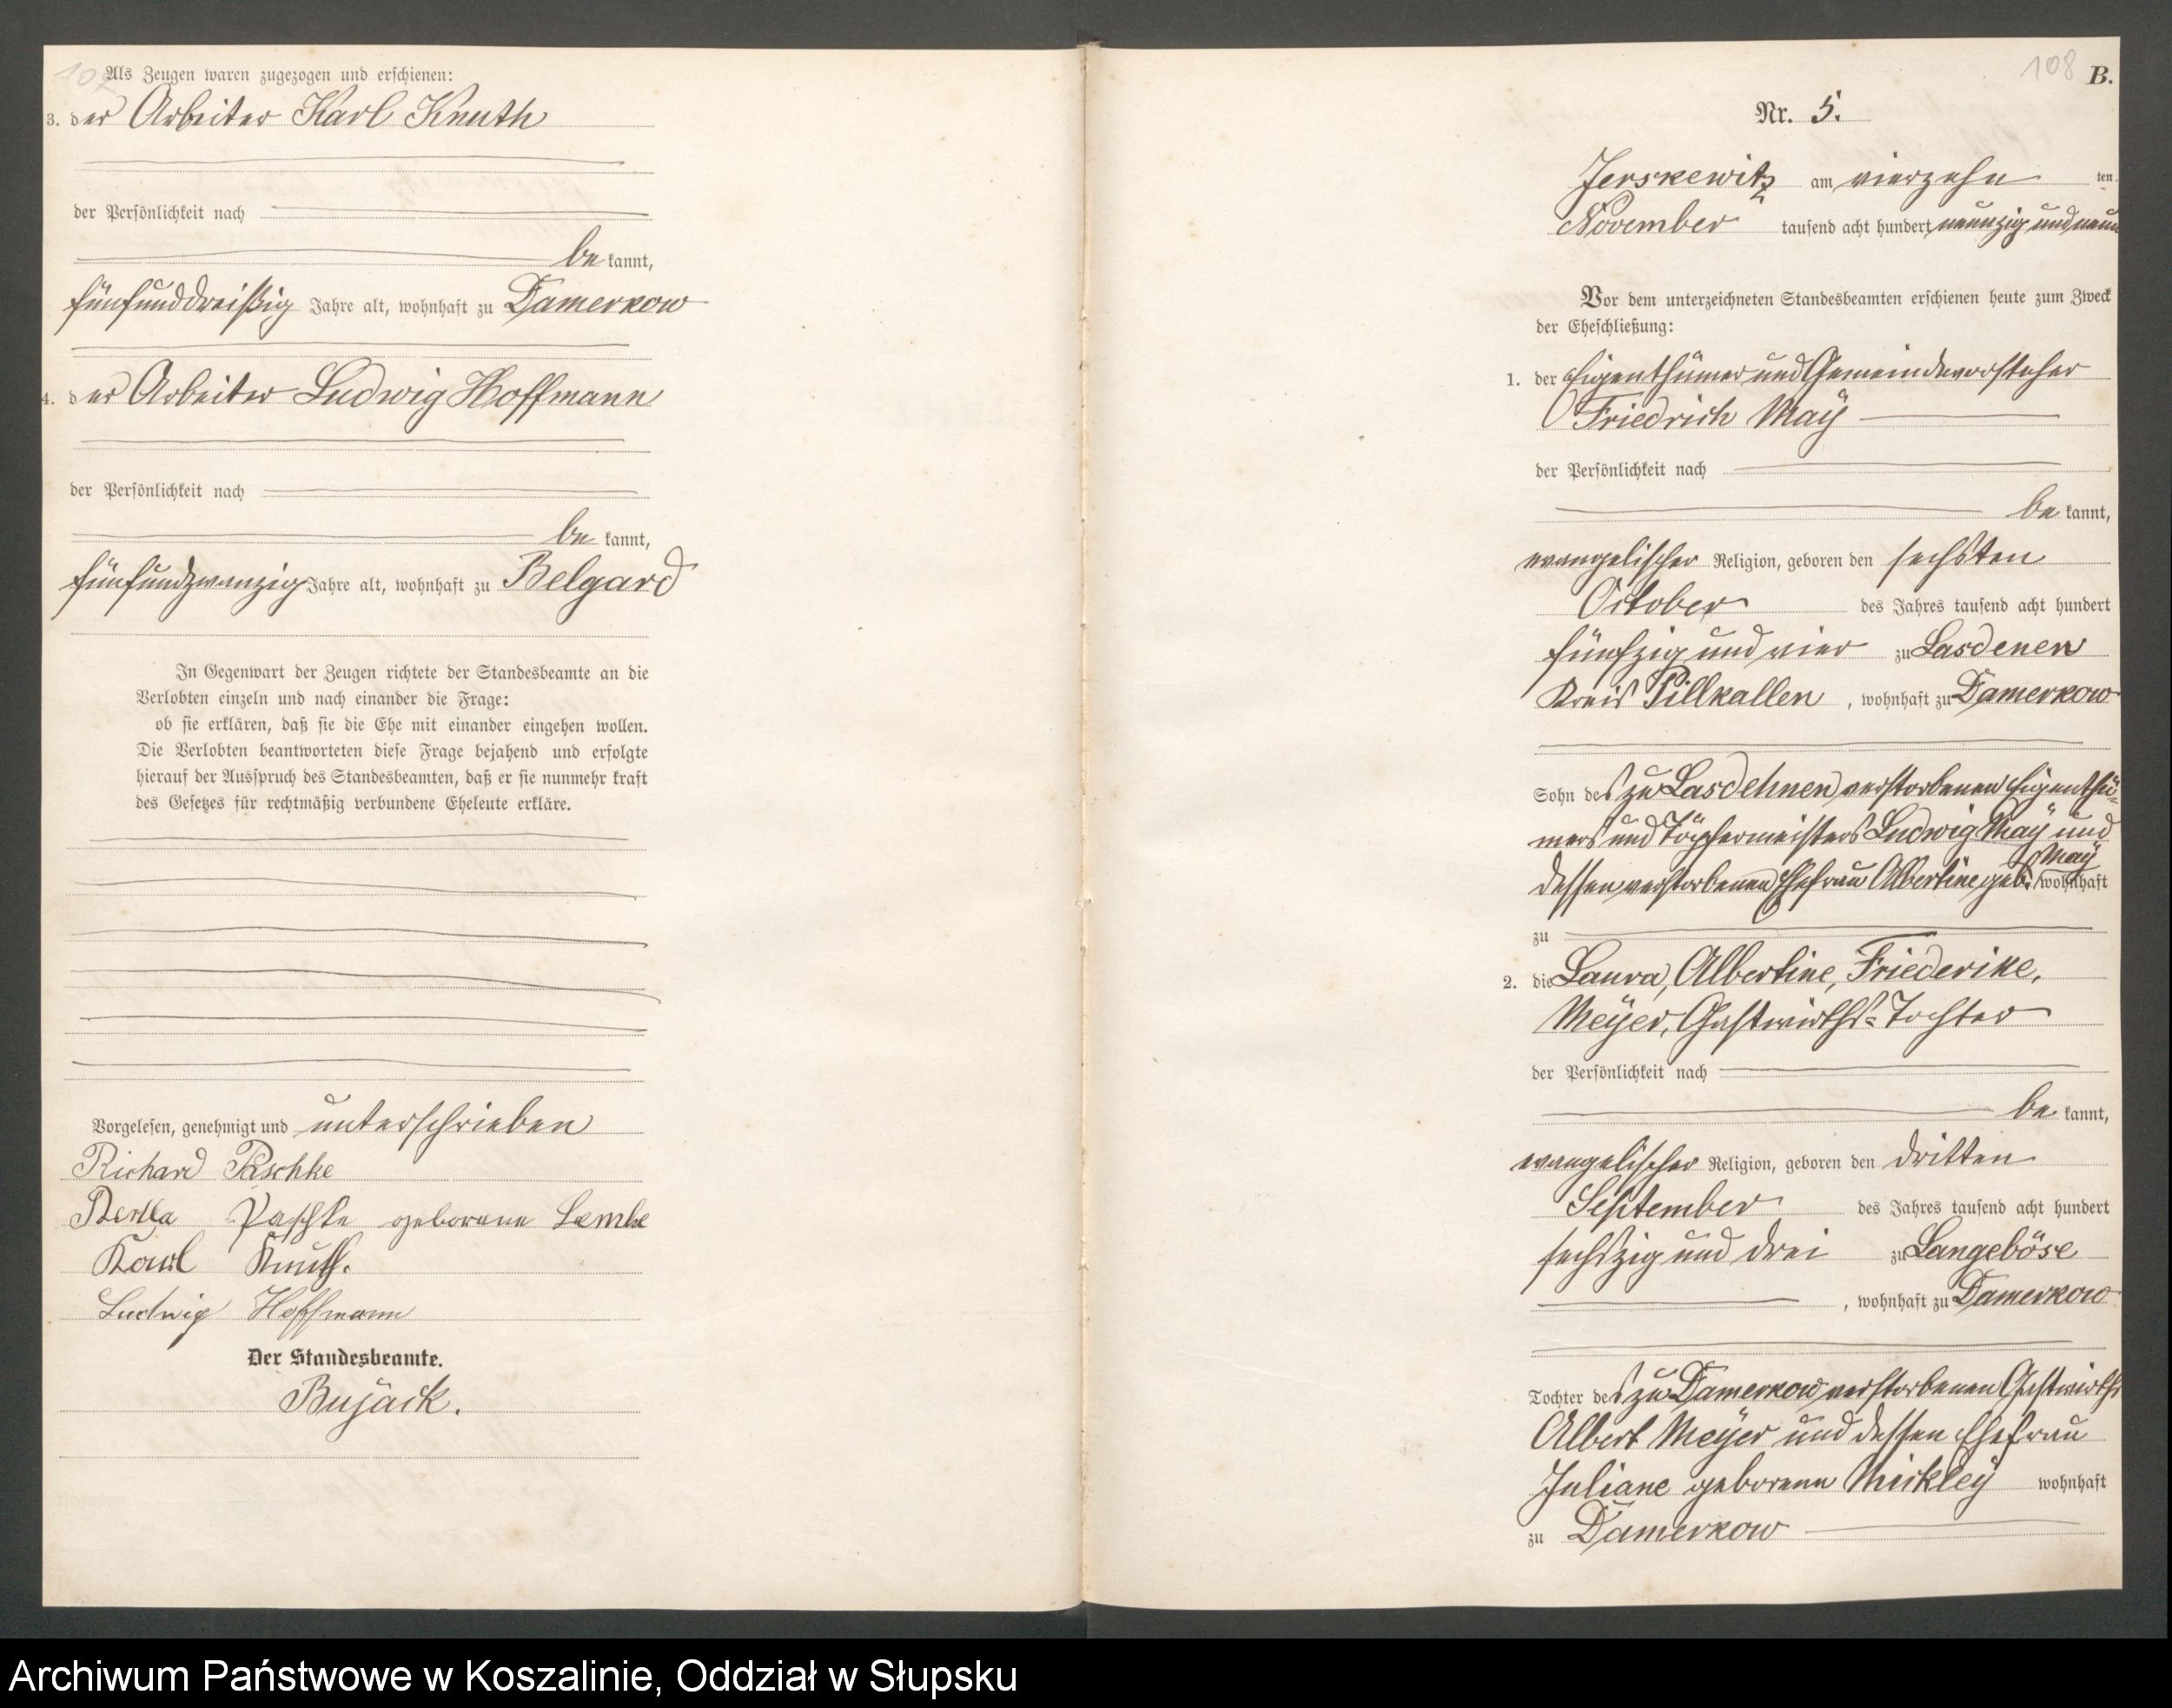 Als Zeugen waren zugezogen und erschienen:
3. der Arbeiter Karl Knuth
der Persönlichkeit nach
be kannt,
fünfunddreißig Jahre alt, wohnhaft zu Damerkow
4. der Arbeiter Ludwig Hoffmann
der Persönlichkeit nach
be kannt,
fünfundzwanzig Jahre alt, wohnhaft zu Belgard
In Gegenwart der Zeugen richtete der Standesbeamte an die
Verlobten einzeln und nach einander die Frage:
ob sie erklären, daß sie die Ehe mit einander eingehen wollen.
Die Verlobten beantworteten diese Frage bejahend und erfolgte
hierauf der Ausspruch des Standesbeamten, daß er sie nunmehr kraft
des Gesetzes für rechtmäßig verbundene Eheleute erkläre.
Vorgelesen, genehmigt und unterschrieben
Richard Paschke
Bertha Paschke geborene Lemke
Karl Knuth.
Ludwig Hoffmann
Der Standesbeamte.
Bujack.
108 B.
Nr. 5.
Jerskewitz am vierzehn ten
November tausend acht hundert neunzig und neun
Vor dem unterzeichneten Standesbeamten erschienen heute zum Zweck
der Eheschließung:
1. der Eigenthümer und Gemeindevorsteher
Friedrich Maÿ
der Persönlichkeit nach
be kannt,
evangelischer Religion, geboren den sechsten
October des Jahres tausend acht hundert
fünfzig und vier zu Lasdenen
Kreis Pillkallen, wohnhaft zu Damerkow
Sohn des zu Lasdehnen verstorbenen Eigenthü-
mers und Töpfermeisters Ludwig Maÿ und
dessen verstorbenen Ehefrau Albertine geb. Maÿ wohnhaft
zu
2. die Laura, Albertine, Friederike,
Meÿer, Gastwirths-Tochter
der Persönlichkeit nach
be kannt,
evangelischer Religion, geboren den dritten
September des Jahres tausend acht hundert
sechszig und drei zu Langeböse
, wohnhaft zu Damerkow
Tochter des zu Damerkow verstorbenen Gastwirths
Albert Meÿer und dessen Ehefrau
Juliane geborene Mickleÿ wohnhaft
zu Damerkow
Archiwum Państwowe w Koszalinie, Oddział w Słupsku